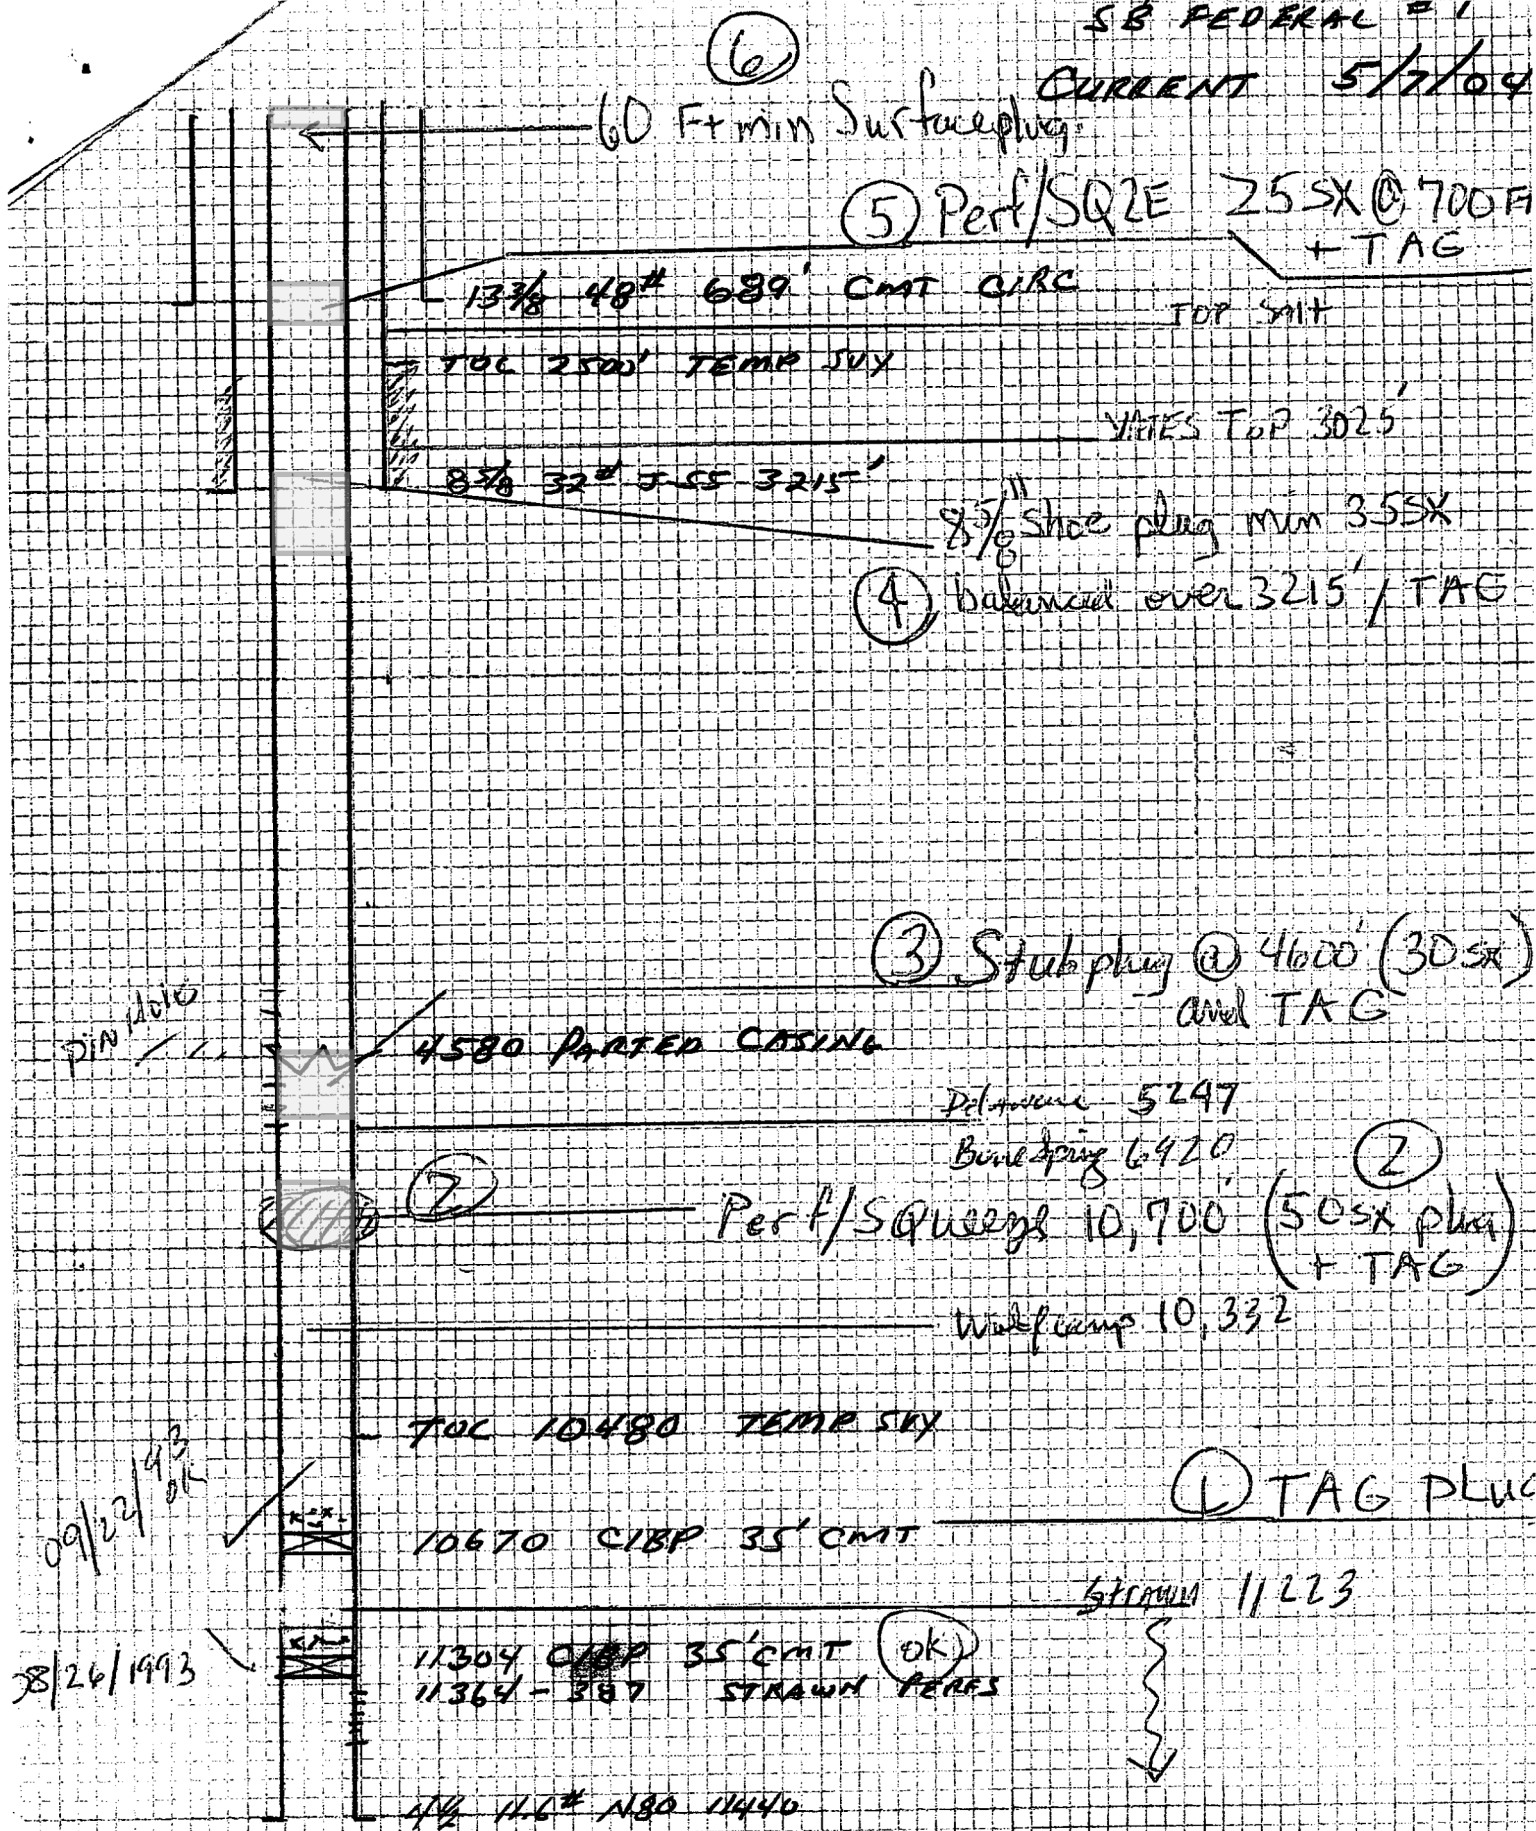 SB FEDERAL #1
6
CURRENT 5/7/04
60 Ft min Surface plug.
5 Perf/SQZE 25SX @ 700 Ft
+ TAG
13 3/8 48# 689' CMT CIRC
TOP SAlt
TOC 2500' TEMP SVY
YATES TOP 3025'
8 5/8 32# J-55 3215'
8 5/8" shoe plug min 35SX
4 balanced over 3215' / TAG
3 Stub plug @ 4600' (30 sx)
and TAG
PIN Hole
4580 PARTED CASING
Delaware 5247
Bone Spring 6920
2
2
Perf/SQueeze 10,700' (50sx plug
+ TAG)
Wolfcamp 10,332
TOC 10480 TEMP SVY
09/22/93
ok
1 TAG PLUG
10670 CIBP 35' CMT
Strawn 11223
11304 CIBP 35' CMT OK
08/26/1993
11364-387 STRAWN PERFS
4 1/2 11.6# N80 11440